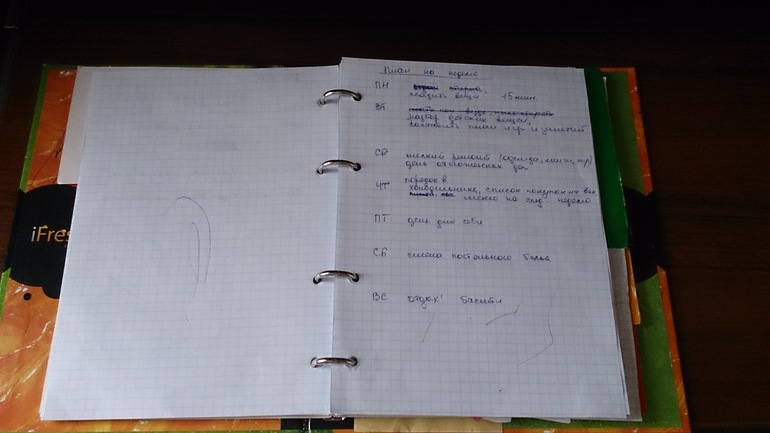 iFres
План на неделю
ПН
гладить вещи 15 мин.
ВТ
разбор детских вещей,
составить план игр и занятий
СР мелкий ремонт (одежда, книги, игр)
день отложенных дел
порядок в
ЧТ холодильнике, список покупок на
меню на след. неделю
ПТ день для себя
СБ смена постельного белья
ВС отдых!